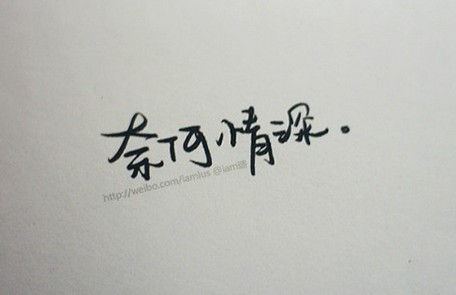 奈何情深。
http://weibo.com/iamlus @iam